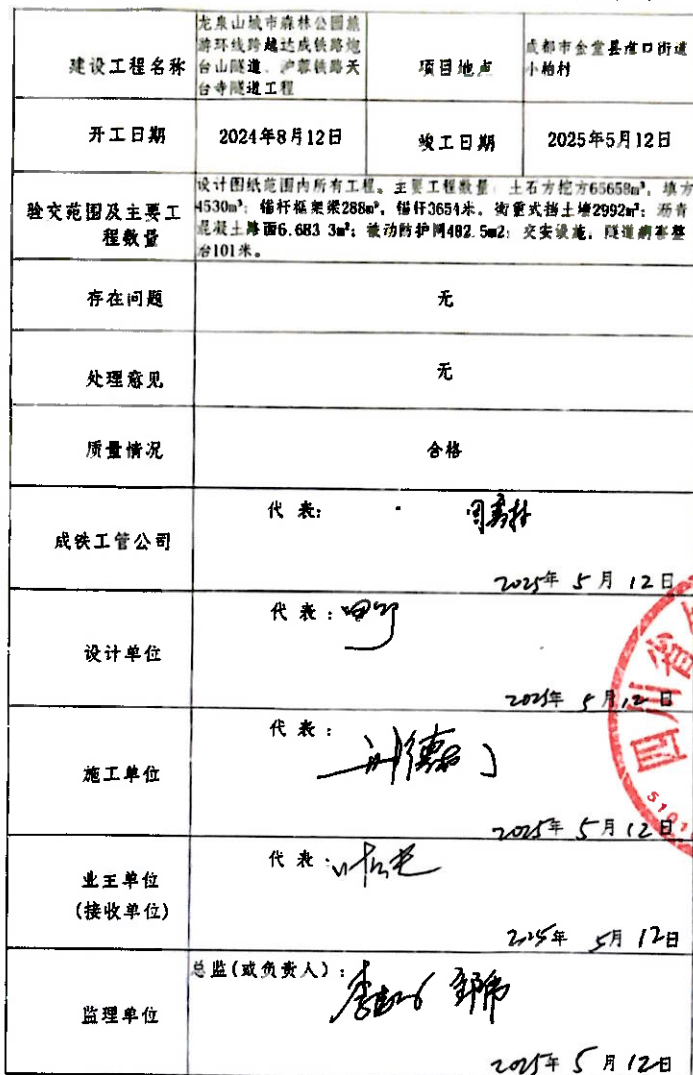 建设工程名称
龙泉山城市森林公园旅
游环线跨越达成铁路炮
台山隧道、沪蓉铁路天
台寺隧道工程
项目地点
成都市金堂县淮口街道
小柏村
开工日期
2024年8月12日
竣工日期
2025年5月12日
验交范围及主要工
程数量
设计图纸范围内所有工程。主要工程数量:土石方挖方65658m³,填方
4530m³;锚杆框架梁288m³,锚杆3654米。衡重式挡土墙2992m²;沥青
混凝土路面6.683 3m²;被动防护网482.5m2;交安设施,隧道病害整
治101米。
存在问题
无
处理意见
无
质量情况
合格
成铁工管公司
代 表:
2025年 5 月 12 日
设计单位
代 表:
2025年 5 月 12 日
施工单位
代 表:
2025年 5 月 12 日
业主单位
(接收单位)
代 表:
2025年 5月 12日
监理单位
总监(或负责人):
2025年 5 月 12日
四川省
5101